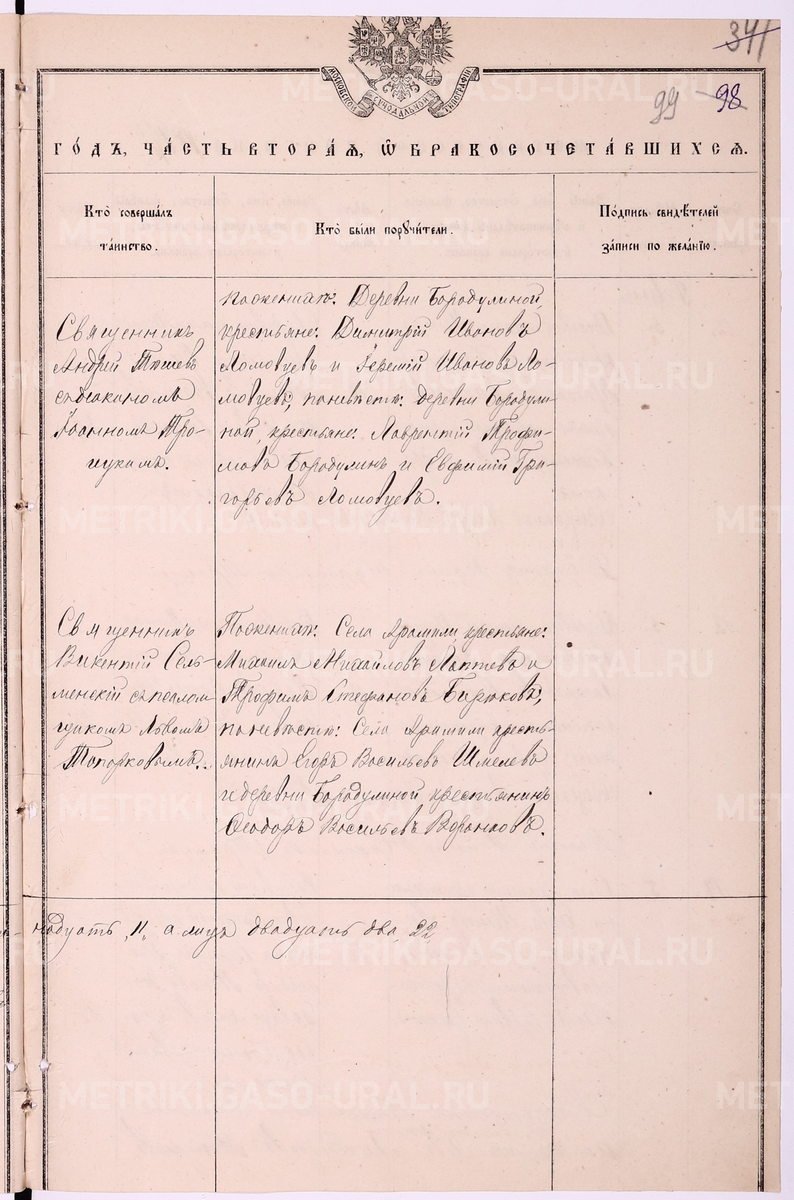 341
99 98
МОСКОВСКОЙ СѴНОДАЛЬНОЙ ТИПОГРАФІИ
ГО́ДЪ, ЧА́СТЬ ВТОРА́Ѧ, Ѡ҆ БРАКОСОЧЕТА́ВШИХСѦ.
Кто̀ совершáлъ
тáинство.
Кто̀ бы́ли порꙋчи́тели.
По́дпись свидѣ́телей
зáписи по желáнїю.
Священникъ
Андрей
съ діакономъ
Іоанномъ Тро-
ицкимъ.
по женихѣ: Деревни Бородулиной,
крестьяне: Димитрій Ивановъ
Ломовцевъ и Іеремій Ивановъ Ло-
мовцевъ, по невѣстѣ: деревни Бородули-
ной, крестьяне: Лаврентій Трофи-
мовъ Бородулинъ и Евфимій Гри-
горьевъ Ломовцевъ.
Священникъ
Викентій Сель-
менскій съ псалом
щикомъ Львомъ
Топорковымъ.
По женихѣ: Села Арамили, крестьяне:
Михаилъ Михайловъ Лаптевъ и
Трофимъ Стефановъ Бирюковъ,
по невѣстѣ: Села Арамили кресть-
янинъ Егоръ Васильевъ Шмелевъ
и деревни Бородулиной крестьянинъ
Ѳеодоръ Васильевъ Воронковъ.
надцать "11" а лицъ двадцать два "22"
METRIKI.GASO-URAL.RU